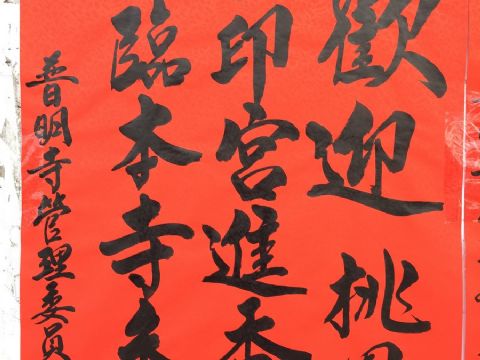 歡迎桃
印宮進香
臨本寺
普明寺管理委員